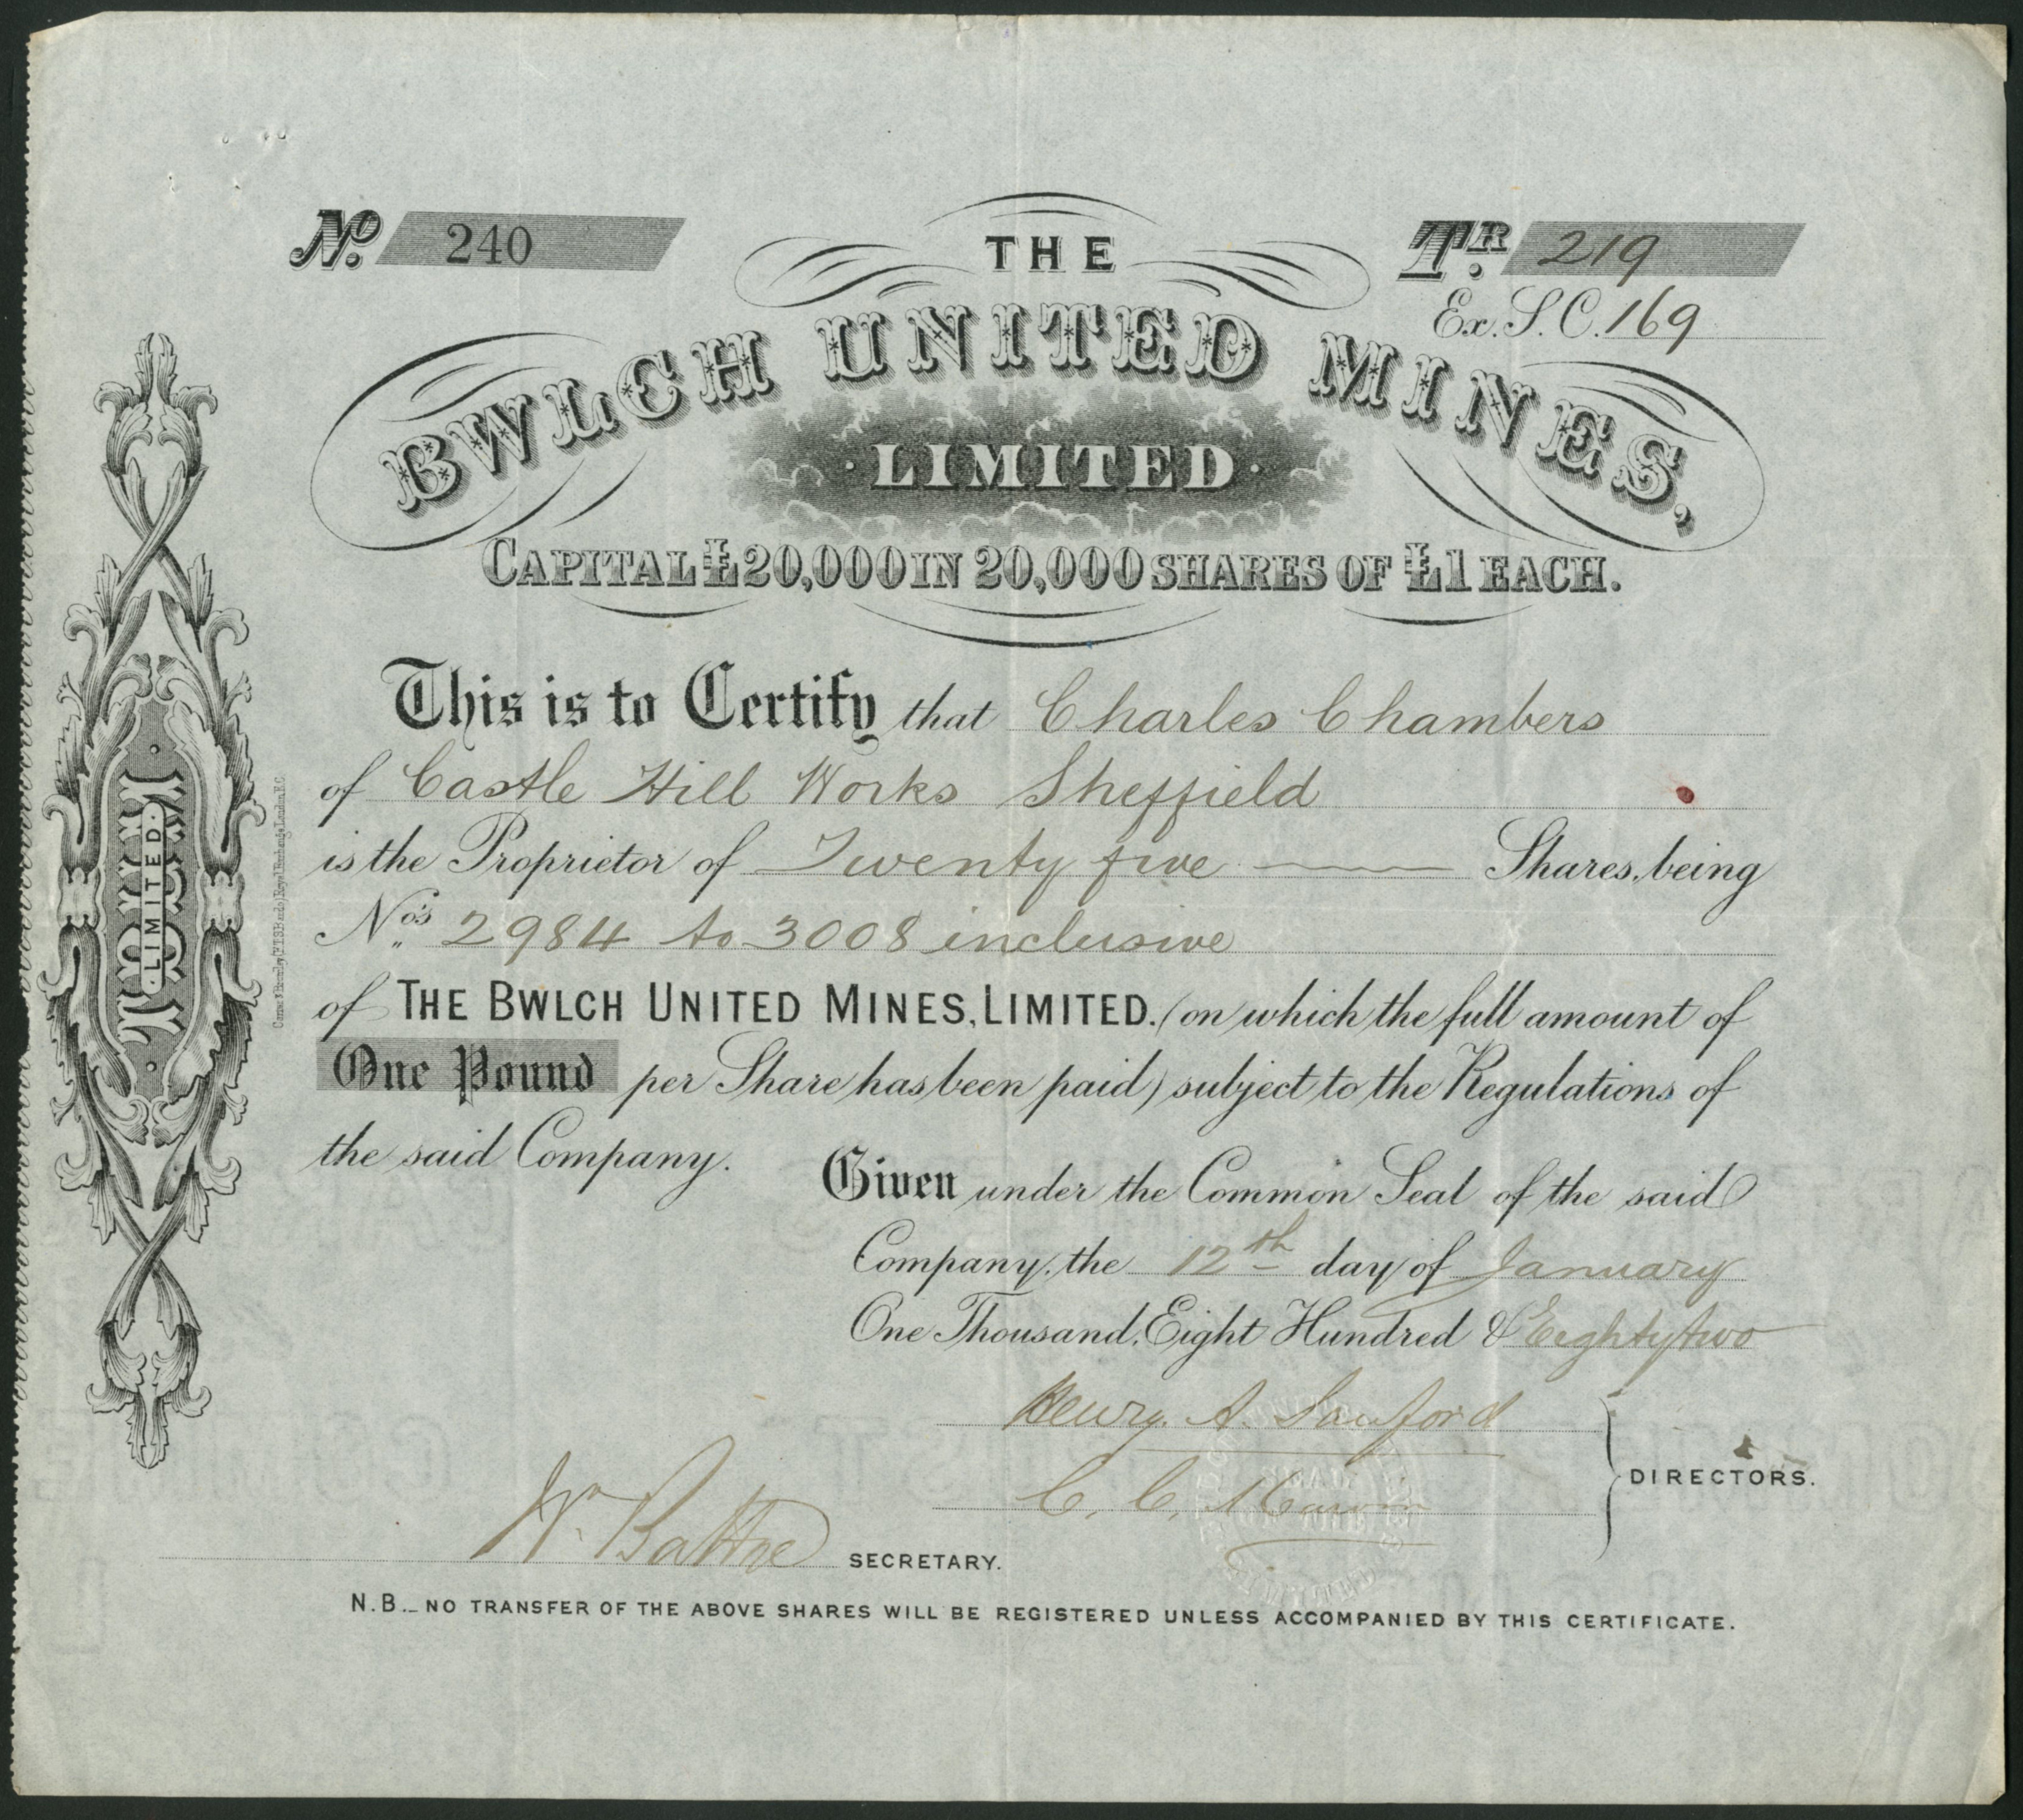 No. 240
TR. 219
Ex. S. C. 169
THE
BWLCH UNITED MINES,
·LIMITED·
CAPITAL £20,000 IN 20,000 SHARES OF £1 EACH.
This is to Certify that Charles Chambers
of Castle Hill Works Sheffield
is the Proprietor of Twenty five Shares, being
Nos. 2984 to 3008 inclusive
of THE BWLCH UNITED MINES, LIMITED. (on which the full amount of
One Pound per Share has been paid) subject to the Regulations of
the said Company.
Given under the Common Seal of the said
Company, the 12th day of January
One Thousand, Eight Hundred & Eighty two
Henry. A. Sanford
C. C.
DIRECTORS.
W. Battye SECRETARY.
N.B._ NO TRANSFER OF THE ABOVE SHARES WILL BE REGISTERED UNLESS ACCOMPANIED BY THIS CERTIFICATE.
LIMITED